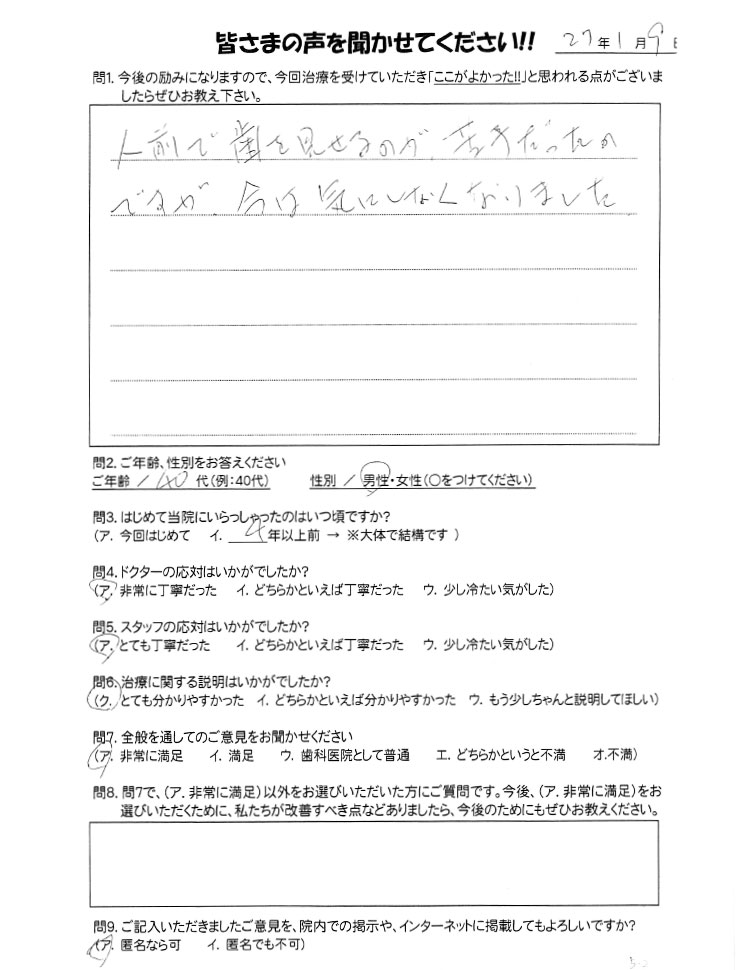 皆さまの声を聞かせてください!! 27年1月9日
問1. 今後の励みになりますので、今回治療を受けていただき「ここがよかった!!」と思われる点がございま
したらぜひお教え下さい。
人前で歯を見せるのが、苦手だったの
ですが、今は気にしなくなりました
問2. ご年齢、性別をお答えください
ご年齢 / 40 代(例:40代) 性別 / 男性・女性(○をつけてください)
問3. はじめて当院にいらっしゃったのはいつ頃ですか?
(ア. 今回はじめて イ. 4年以上前 → ※大体で結構です )
問4. ドクターの応対はいかがでしたか?
(ア. 非常に丁寧だった イ. どちらかといえば丁寧だった ウ. 少し冷たい気がした)
問5. スタッフの応対はいかがでしたか?
(ア. とても丁寧だった イ. どちらかといえば丁寧だった ウ. 少し冷たい気がした)
問6. 治療に関する説明はいかがでしたか?
(ク. とても分かりやすかった イ. どちらかといえば分かりやすかった ウ. もう少しちゃんと説明してほしい)
問7. 全般を通してのご意見をお聞かせください
(ア. 非常に満足 イ. 満足 ウ. 歯科医院として普通 エ. どちらかというと不満 オ.不満)
問8. 問7で、(ア. 非常に満足)以外をお選びいただいた方にご質問です。今後、(ア. 非常に満足)をお
選びいただくために、私たちが改善すべき点などありましたら、今後のためにもぜひお教えください。
問9. ご記入いただきましたご意見を、院内での掲示や、インターネットに掲載してもよろしいですか?
(ア. 匿名なら可 イ. 匿名でも不可)